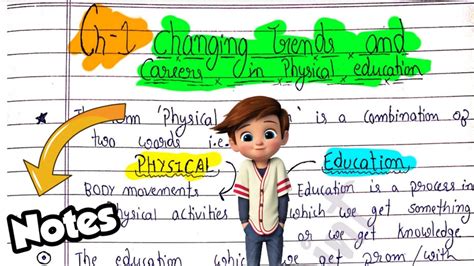 Ch-1 Changing trends and
Careers in Physical education
★ The term 'Physical is a combination of
two words i.e.
PHYSICAL Education
BODY movements Education is a process in
physical activities which we get something
or we get knowledge
The education which we get from/with
Notes